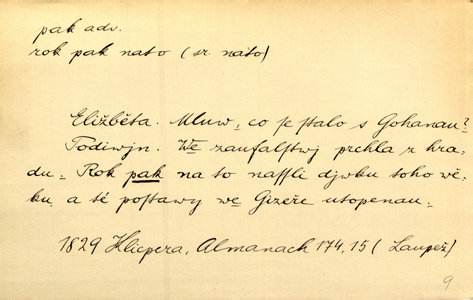 pak adv.
rok pak na to (sr. náto)
Eližběta. Mluw, co se stalo s Gohanau?
Todiwjn. We zaufalstwj prchla z hra-
du. Rok pak na to nassli djwku toho wě-
ku, a té postawy we Gizeře utopenau.
1829 Klicpera, Almanach 174, 15 (Laupež)
9